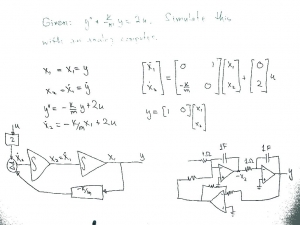 Given: ÿ + k/m y = 2u. Simulate this
with an analog computer.
x₁ = x₁ = y
x₂ = ẋ₁ = ẏ
ÿ = -k/m y + 2u
ẋ₂ = -k/m x₁ + 2u
[ẋ₁ ẋ₂] = [0 1 -k/m 0] [x₁ x₂] + [0 2] u
y = [1 0] [x₁ x₂]
u
2
ẋ₂ ∫ x₂ = ẋ₁ ∫ x₁ y
-k/m
1F 1F
1Ω 1Ω
-x₂ y